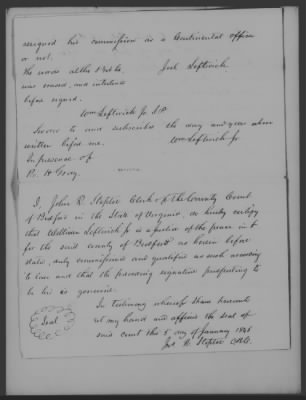 resigned his commission as a Continental officer
or not.
The words at the 1st he Joel Leftwich
was erased, and interlined
before signed.
Wm Leftwich Jr J.P.
Sworn to and subscribed the day and year above
written before me. Wm Leftwich Jr
In presence of
R. H Gray.
I, John R. Steptoe Clerk of the County Court
of Bedford in the State of Virginia, do hereby certify
that William Leftwich Jr is a justice of the peace in &
for the said county of Bedford as herein before
stated, duly commissioned and qualified as such according
to law and that the preceding signature purporting to
be his is genuine.
In testimony whereof I have hereunto
set my hand and affixed the seal of
Seal
said court this 5 day of January 1841
Jno R. Steptoe C.B.C.